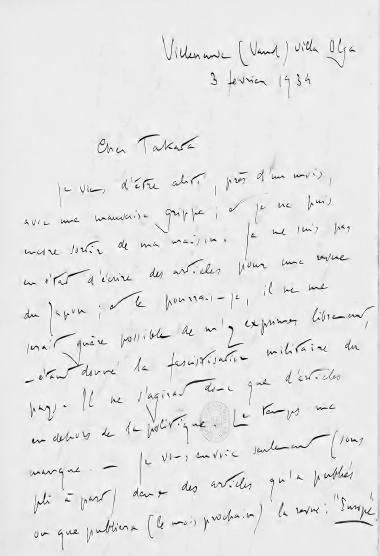 Villeneuve (Vaud) villa Olga
3 février 1934
Cher Takata
Je viens d'être alité, près d'un mois,
avec une mauvaise grippe ; et je ne puis
encore sortir de ma maison. Je ne suis pas
en état d'écrire des articles pour une revue
du Japon ; et le pourrais-je, il ne me
serait guère possible de m'y exprimer librement,
– étant donné la fascisation militaire du
pays. Il ne s'agirait donc que d'articles
en dehors de la politique. Le temps me
manque. – Je vous envoie seulement (sous
pli à part) deux des articles qu'a publiés
ou que publiera (le mois prochain) la revue : "Europe".